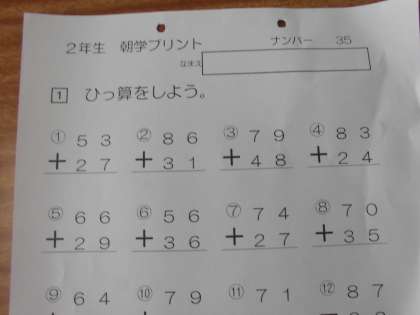 2年生 朝学プリント ナンバー 35
なまえ
1 ひっ算をしよう。
① 53 ② 86 ③ 79 ④ 83
+27 +31 +48 +24
⑤ 66 ⑥ 56 ⑦ 74 ⑧ 70
+29 +36 +27 +35
⑨ 64 ⑩ 79 ⑪ 71 ⑫ 87